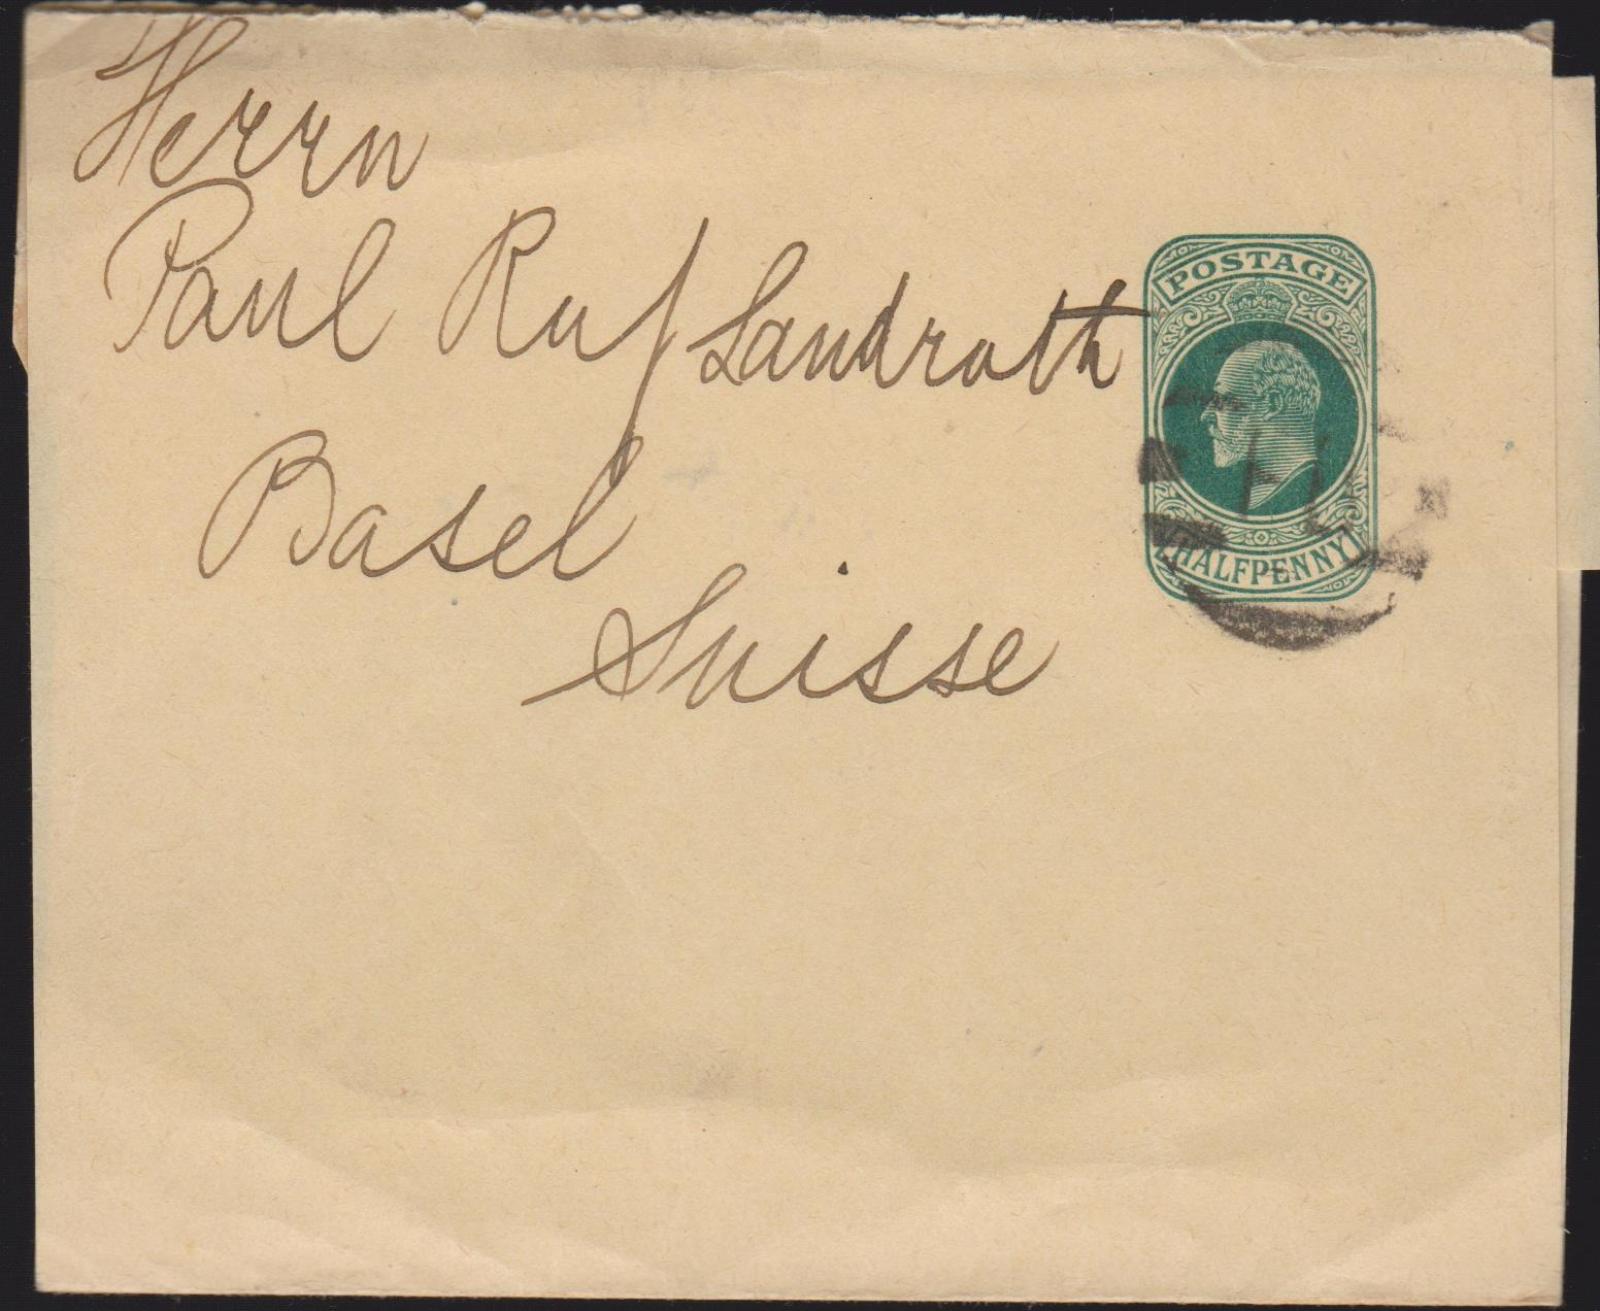 Herrn
Paul Ruf Landrath
Basel
Suisse
POSTAGE
HALFPENNY